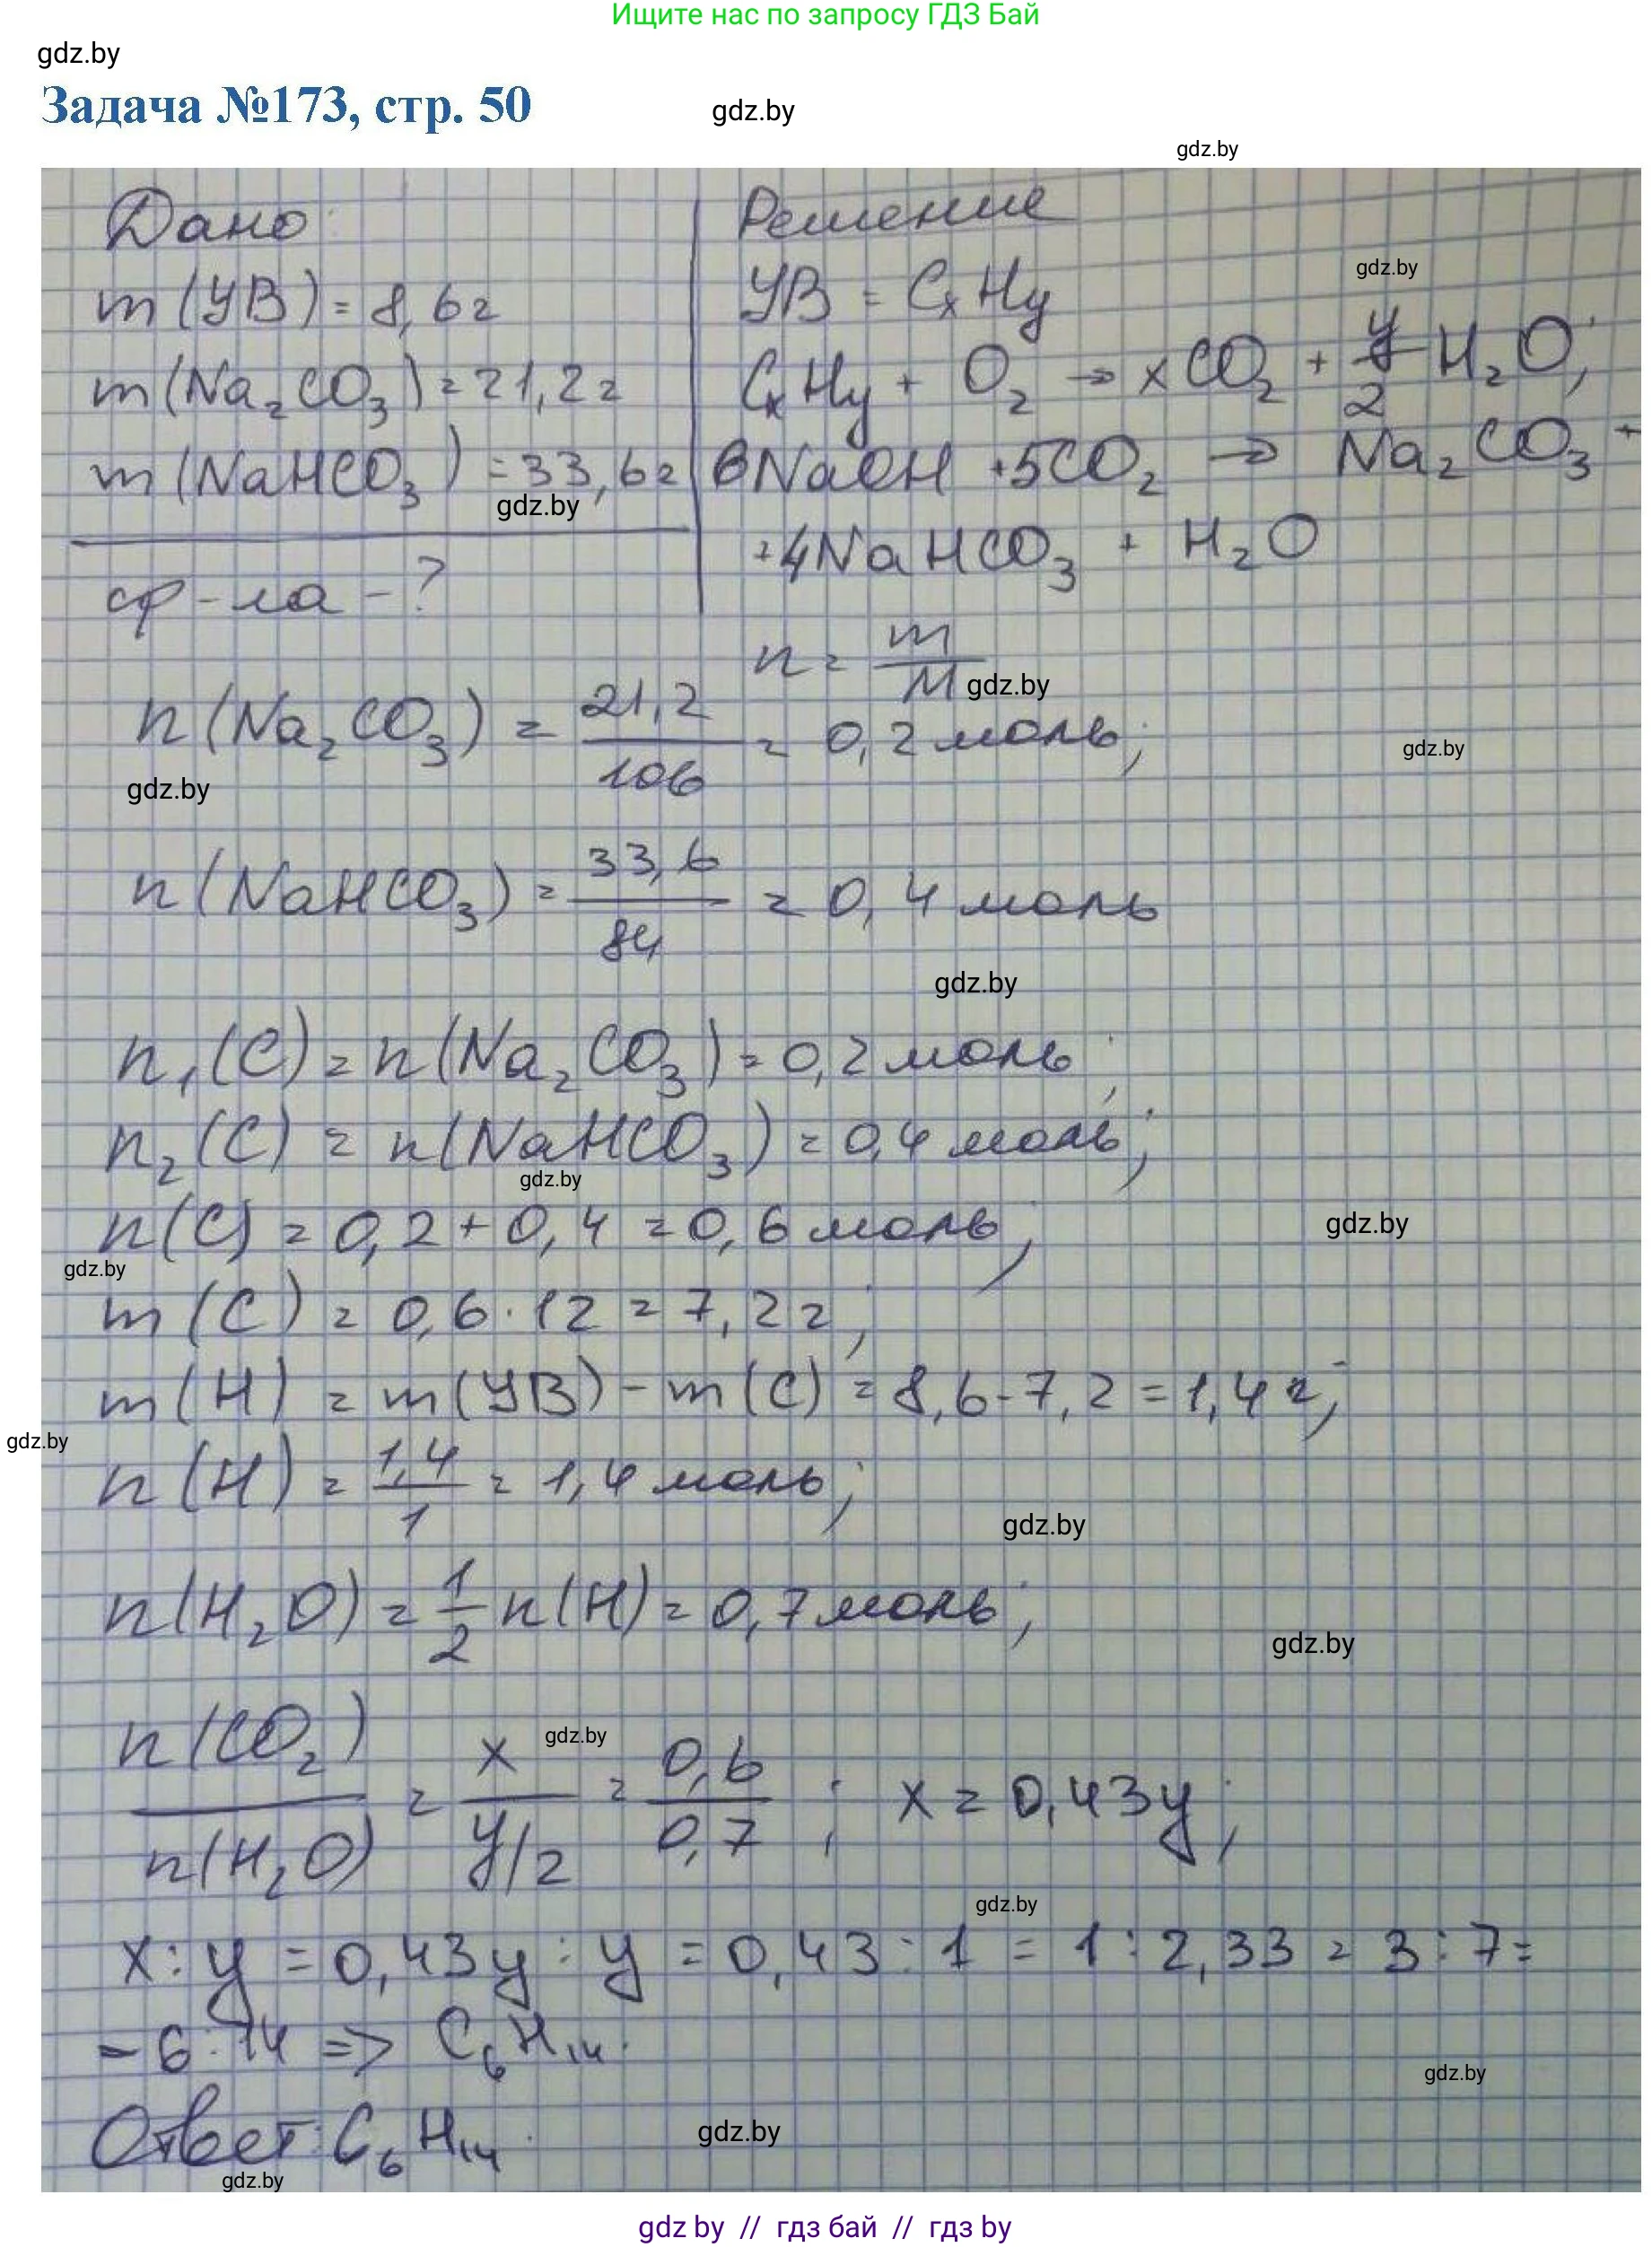 Ищите нас по запросу ГДЗ Бай
gdz.by
Задача №173, стр. 50
gdz.by
gdz.by
Дано:
Решение
m(УВ) = 8,6г
УВ = CxHy
gdz.by
m(Na₂CO₃) = 21,2г
CxHy + O₂ → xCO₂ + y/2 H₂O;
m(NaHCO₃) = 33,6г
6NaOH + 5CO₂ → Na₂CO₃ +
gdz.by
+4NaHCO₃ + H₂O
ф-ла - ?
n = m/M
gdz.by
n(Na₂CO₃) = 21,2/106 = 0,2 моль;
gdz.by
gdz.by
n(NaHCO₃) = 33,6/84 = 0,4 моль
gdz.by
n₁(C) = n(Na₂CO₃) = 0,2 моль;
n₂(C) = n(NaHCO₃) = 0,4 моль;
gdz.by
n(C) = 0,2 + 0,4 = 0,6 моль;
gdz.by
gdz.by
m(C) = 0,6 · 12 = 7,2г;
m(H) = m(УВ) - m(C) = 8,6 - 7,2 = 1,4г;
gdz.by
n(H) = 1,4/1 = 1,4 моль;
gdz.by
n(H₂O) = 1/2 n(H) = 0,7 моль;
gdz.by
gdz.by
n(CO₂)/n(H₂O) = x/y/2 = 0,6/0,7; x = 0,43y;
gdz.by
x : y = 0,43y : y = 0,43 : 1 = 1 : 2,33 = 3 : 7 =
= 6 : 14 => C₆H₁₄.
gdz.by
Ответ: C₆H₁₄.
gdz.by
gdz.by
gdz by // гдз бай // гдз by